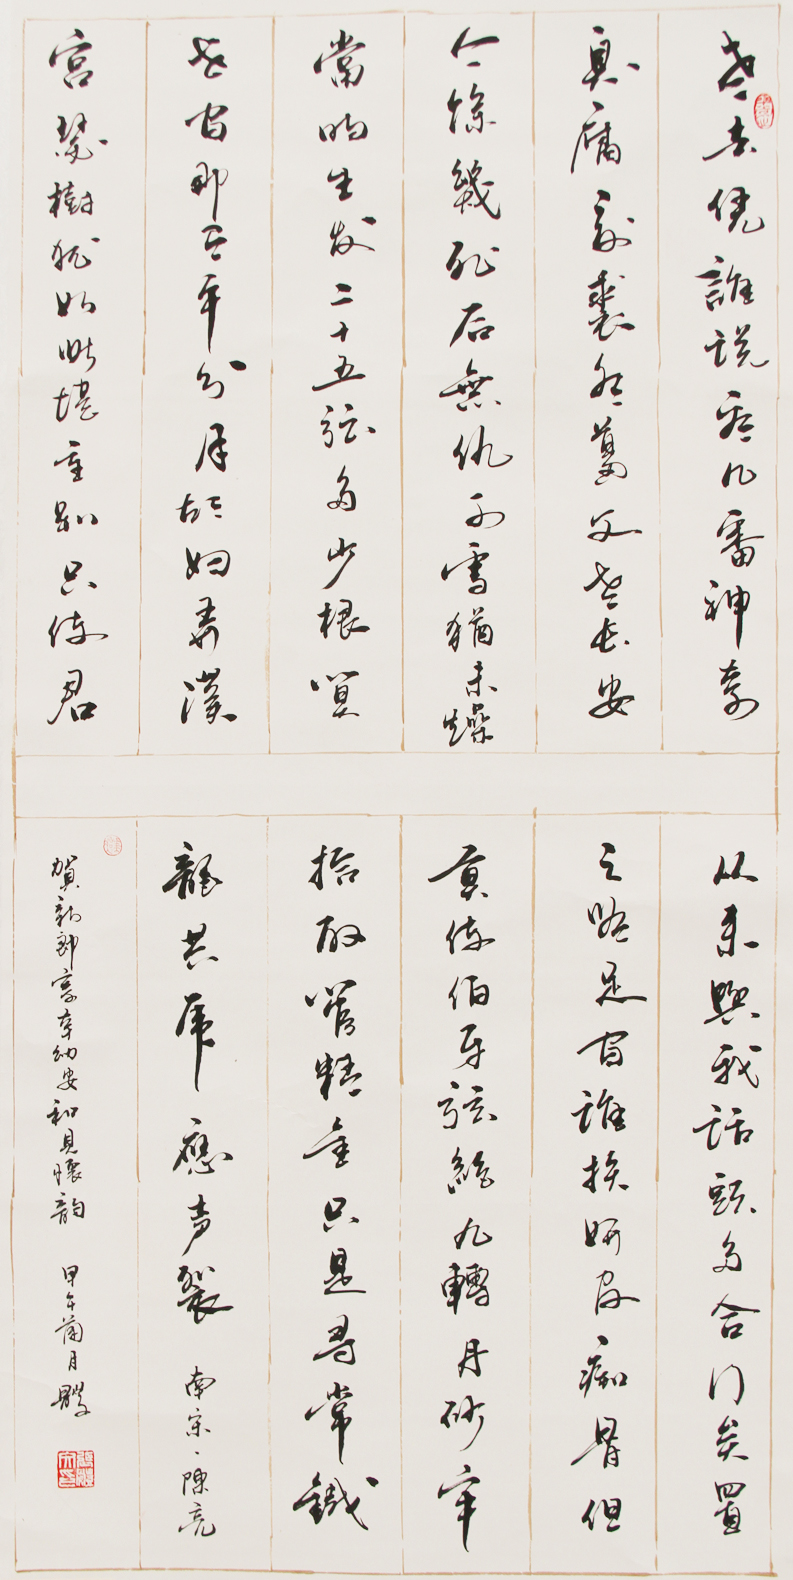 老去凭誰説看几番神奇
臭腐夏裘冬葛父老長安
今馀幾死后無仇可雪猶未燥
當时生发二十五弦多少恨算
世间那有平分月胡妇弄漢
宫瑟樹犹如此堪重别只使君
从来與我話頭多合行矣置
之無足问誰换妍皮痴骨但
莫使伯牙弦絶九轉丹砂牢
拾取管精金只是尋常鐵
龍共虎應声裂 南宋、陳亮
賀新郎寄辛幼安和見懷韵 甲午蘭月